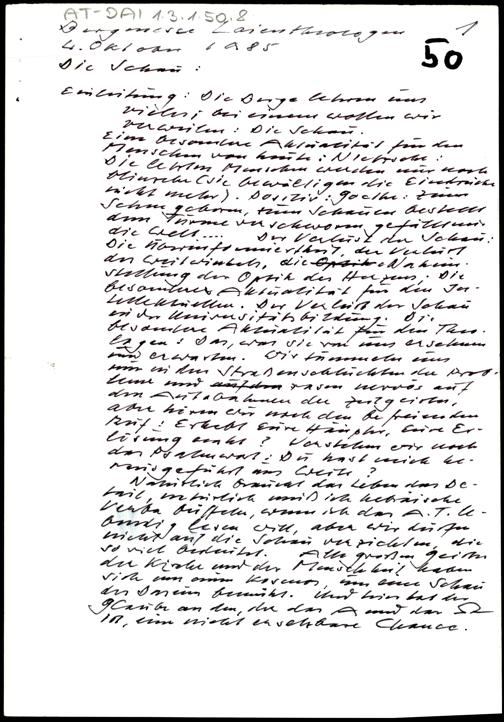 AT-DAI 1.3.1.50.8
Bergmesse Laientheologen 1
4. Oktober 1985 50
Die Schau:
Einleitung: Die Berge lehren uns
vieles; bei einem wollen wir
verweilen: Die Schau.
Eine besondere Aktualität für den
Menschen von heute: Nietzsche:
Die letzten Menschen werden nur noch
blinzeln (sie bewältigen die Eindrücke
nicht mehr). Positiv: Goethe: zum
Sehen geboren, zum Schauen bestellt
dem Turme verschworen gefällt mir
die Welt... Der Verlust der Schau:
Die Überinformiertheit, der Verlust
des Weitwinkels, die Optik Naheinstellung
der Optik des Herzens. Die
besondere Aktualität für den Intellektuellen.
Der Verlust der Schau
in der Universitätsbildung. Die
besondere Aktualität für den Theologen:
Das, was sie von uns ersehnen
und erwarten. Wir tummeln uns
nur in den Straßenschluchten der Probleme
und auf den rasen nervös auf
den Autobahnen der Zeitgeister,
aber hören wir noch den befreienden
Ruf: Erhebt Eure Häupter, Eure Erlösung
naht? Verstehen wir noch
das Psalmwort: Du hast mich herausgeführt
ins Weite?
Natürlich braucht das Leben das Detail,
natürlich muß ich hebräische
Verba büffeln, wenn ich das A.T. lebendig
lesen will, aber wir dürfen
nicht auf die Schau verzichten, die
so viel bedeutet. Alle großen Geister
der Kirche und der Menschheit haben
sich um einen Kosmos, um eine Schau
des Daseins bemüht. Und hier hat der
Glaube an den, der das A und das Ω
ist, eine nicht ersetzbare Chance.